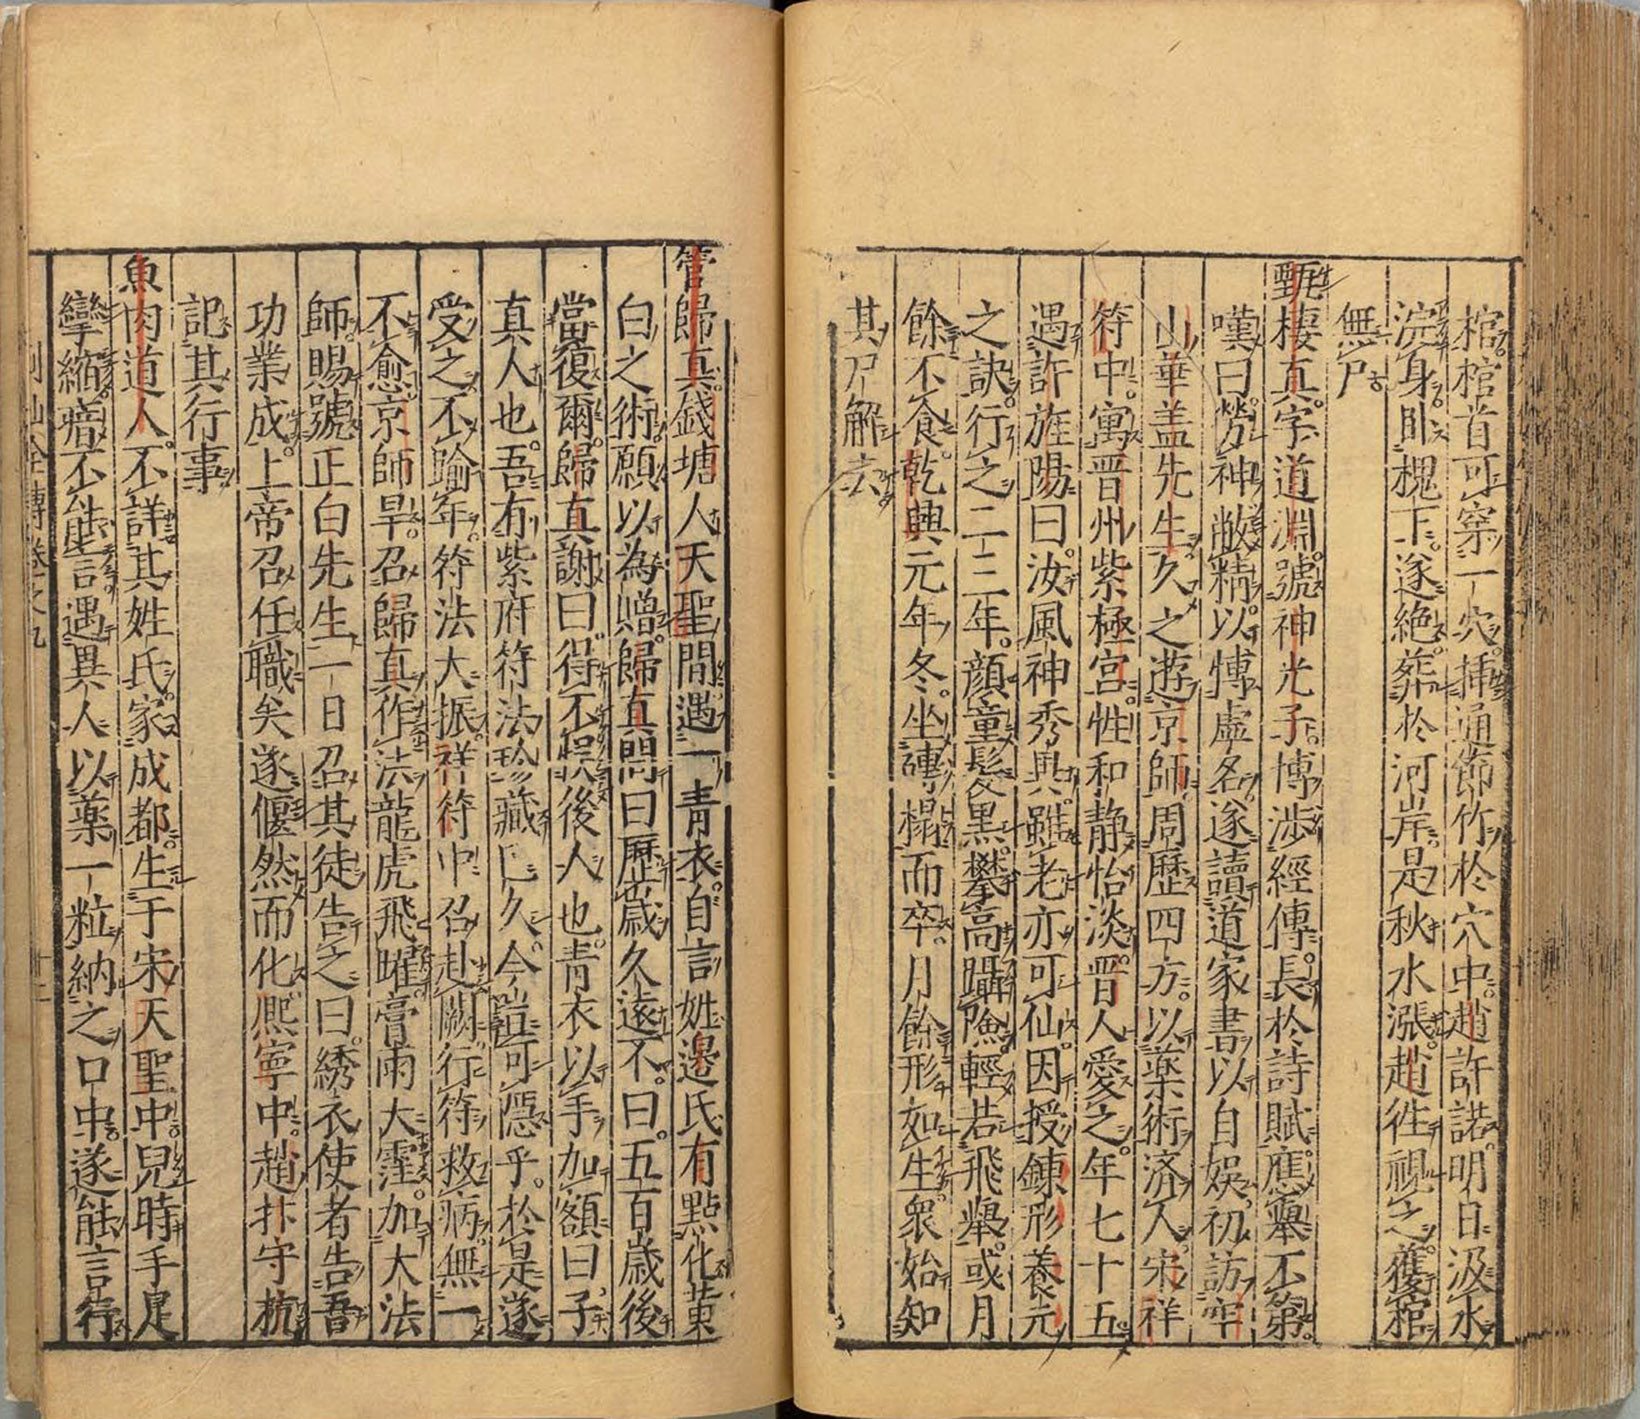 棺棺首可穿一穴。挿通節竹於穴中。趙許諾。明日汲水
浣身臥槐下。遂絶。葬於河岸。是秋水漲。趙徃視之。獲棺
無尸。
甄棲真字道淵。號神光子。博渉經傳。長於詩賦。應舉不第。
嘆曰。勞神敝精以愽虚名。遂讀道家書以自娯。初訪牢
山華盖先生。久之遊京師。周歷四方。以薬術済人。宋祥
符中。寓晋州紫極宮。性和静怡淡。晋人愛之。年七十五。
遇許旌陽曰。汝風神秀異。雖老亦可仙。因授錬形養元
之訣。行之二三年。顔童髮黒。攀高躡險。輕若飛舉。或月
餘不食。乾興元年冬。坐磚榻而卒。月餘形如生。衆始知
其尸解去。
管歸真。錢塘人。天聖間遇一青衣。自言姓邊氏有點化黄
白之術。願以為贈。歸真問曰。歴歳久遠不。曰。五百歳後
當復爾。歸真謝曰。得不悞後人也。青衣以手加額曰。子
真人也。吾有紫府符法珍藏已久。今豈可隠乎。於是遂
受之。不踰年。符法大振。祥符中召赴闕。行符救病。無一
不愈。京師旱。召歸真作法。龍虎飛曜。膏雨大霔。加大法
師。賜號正白先生。一日召其徒告之曰。綉衣使者告吾
功業成。上帝召任職矣。遂偃然而化。熈寧中。趙抃守杭
記其行事
魚肉道人。不詳其姓氏。家成都。生于宋天聖中。兒時手足
攣縮。瘖不能言。遇異人以藥一粒納之口中。遂能言行
列仙全傳卷之九 十二